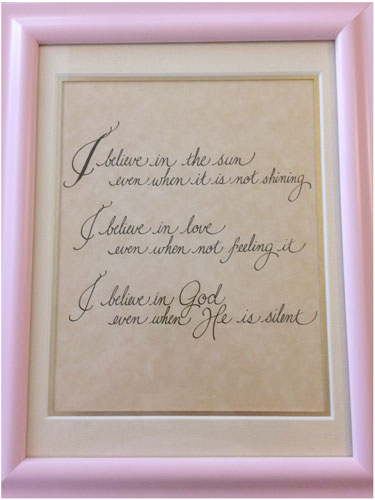 I believe in the sun
even when it is not shining
I believe in love
even when not feeling it
I believe in God
even when He is silent